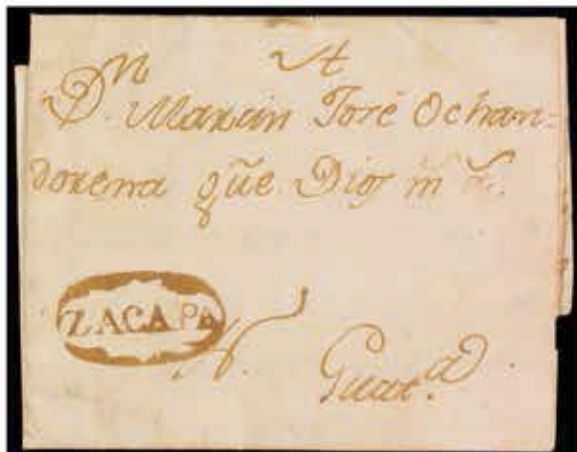 Dn. Martin José Ochan-
dorena que Dios m a.
ZACAPA
N.
Guat.a